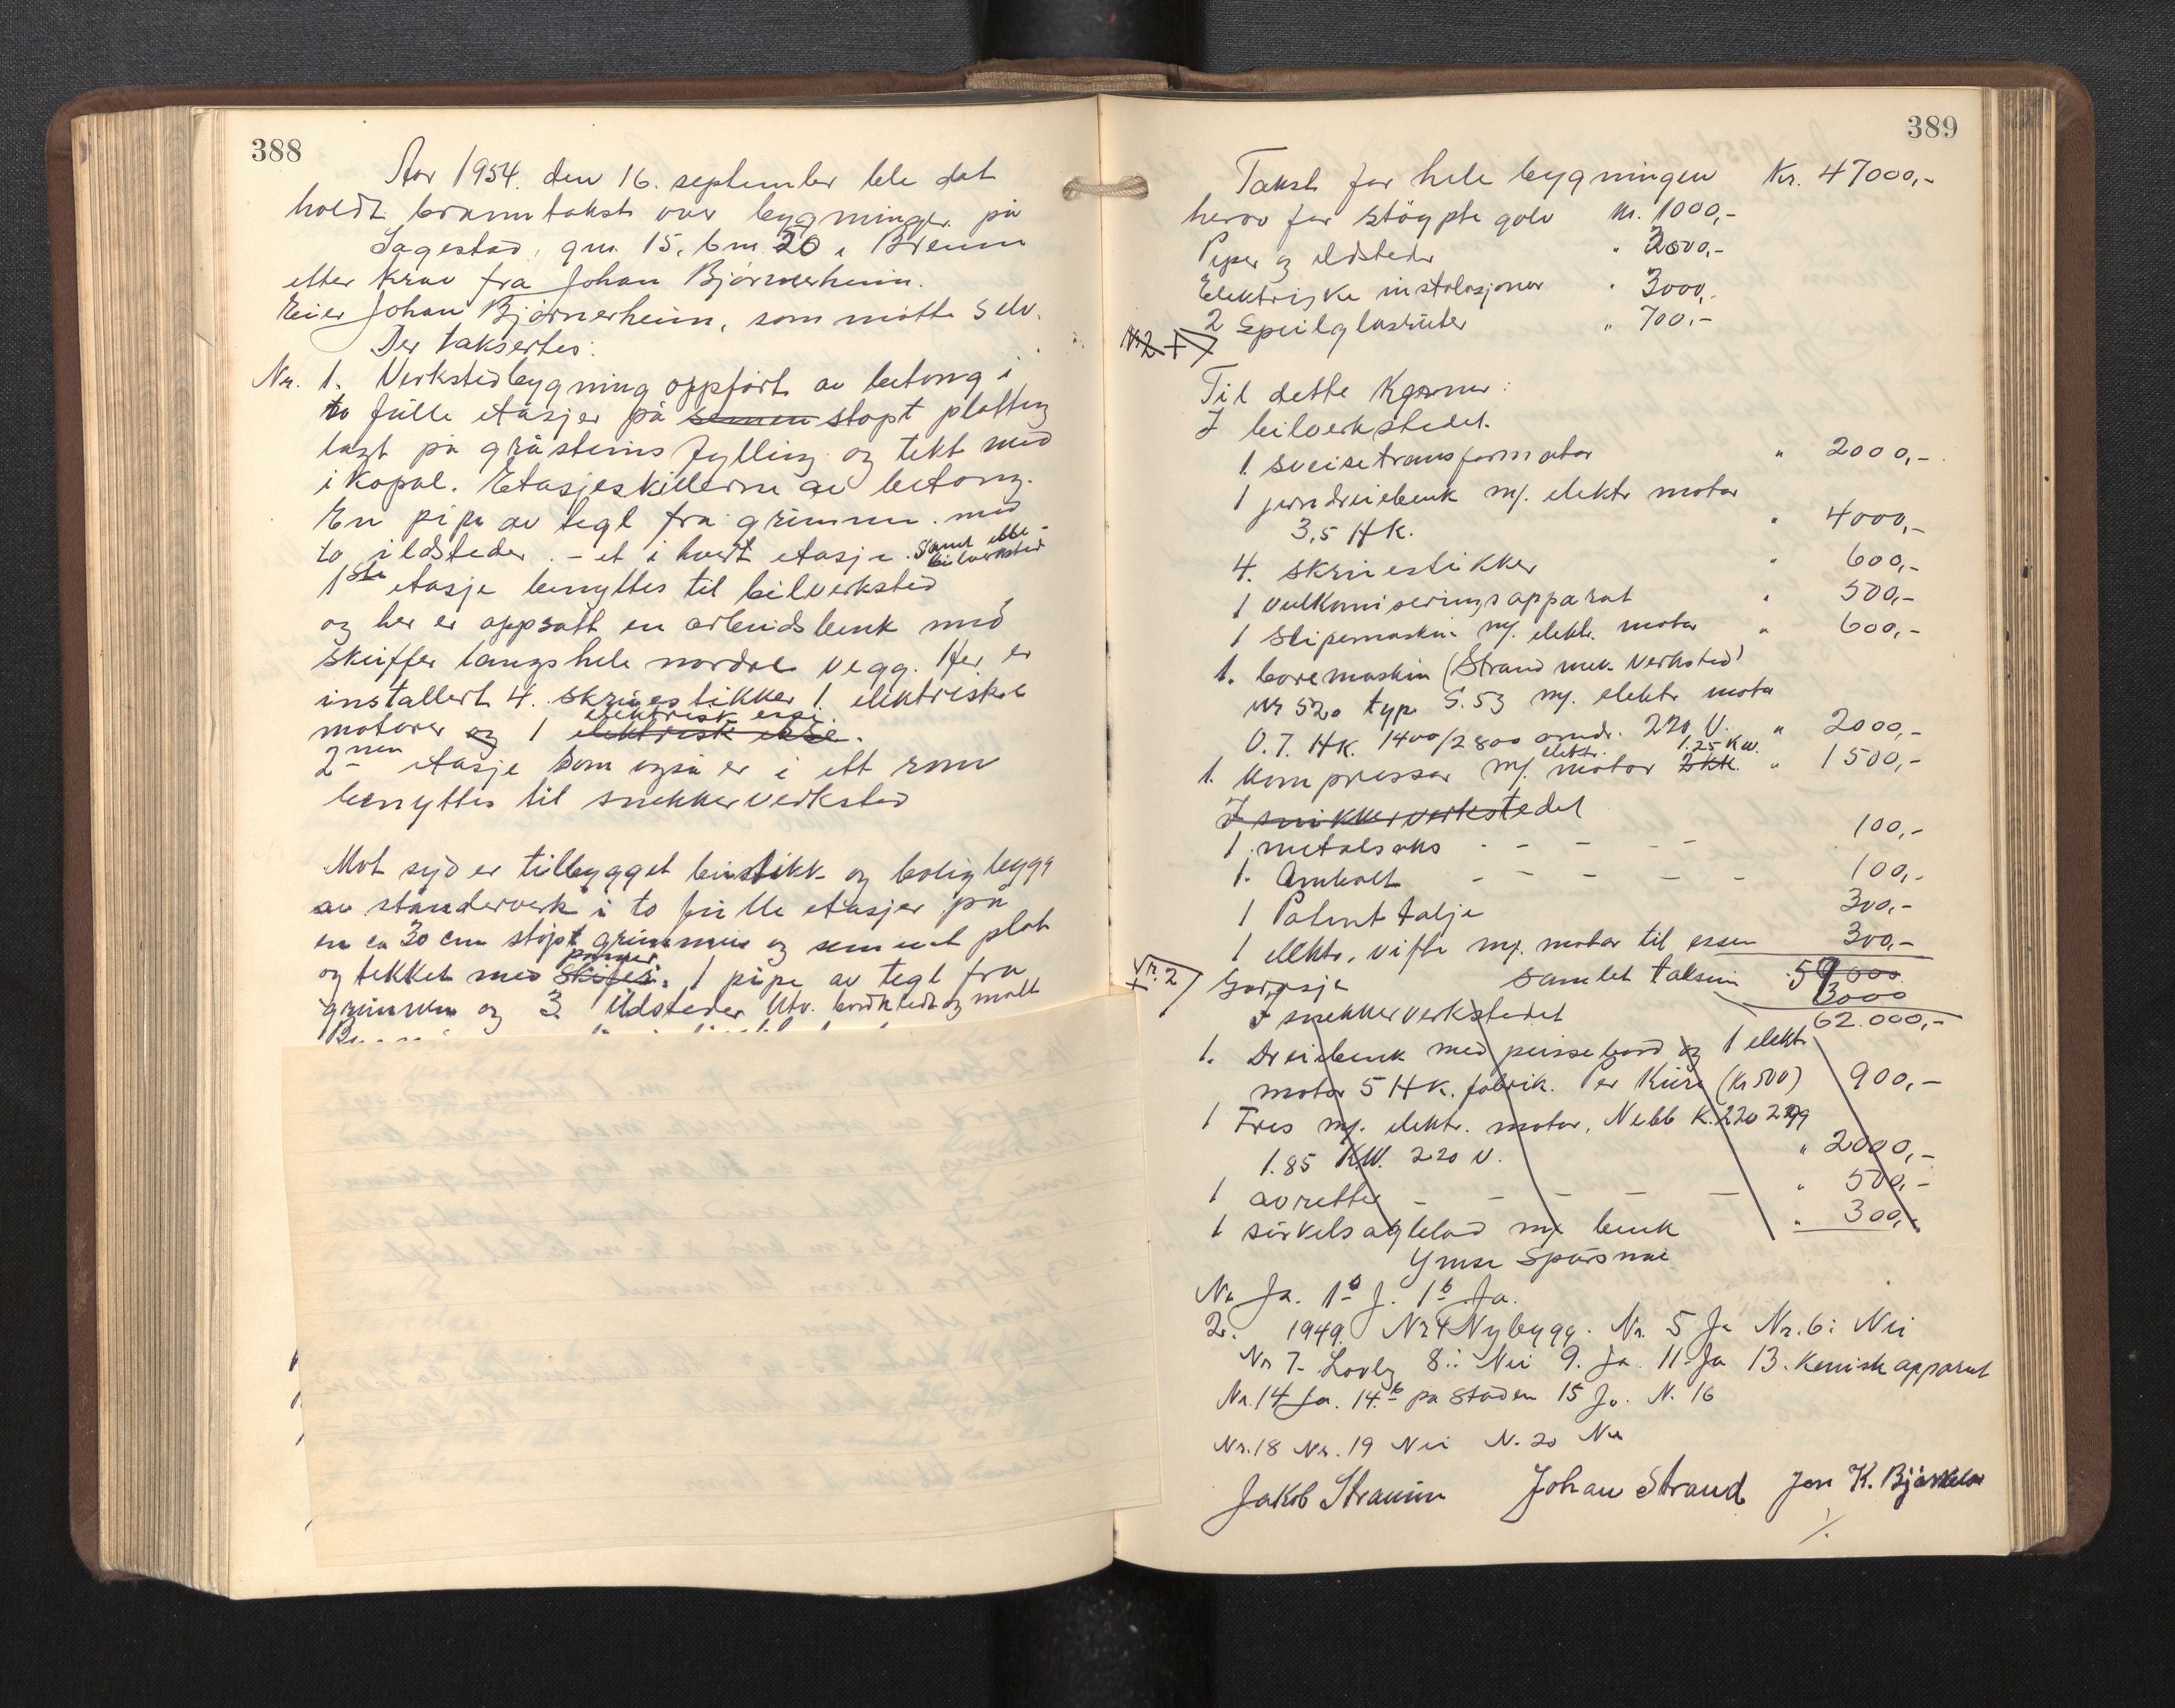 388
Aar 1954. den 16. september ble det
holdt branntakst over bygninger på
Sagestad, gnr. 15, bnr. 20 i Breim
etter krav fra Johan Bjørnerheim.
Eier Johan Bjørnerheim, som møtte selv.
Der taksertes:
Nr. 1. Verkstedbygning oppført av betong i
to fulle etasjer på semen støpt platting
lagt på gråsteins fylling og tekt med
ikopal. Etasjeskillerne av betong.
En pipe av tegl fra grunnen med
to ildsteder. - et i hvert etasje. Samt esse
bilverksted
1ste etasje benyttes til bilverksted
og her er oppsatt en arbeidsbenk med
skuffer langs hele nordre vegg. Her er
installert 4. skruestikker 1. elektriske
elektrisk esse.
motorer og 1 elektrisk esse.
2nen etasje som også er i ett rom
benyttes til snekkerverksted
Mot syd er tilbygget butikk og boligbygg
av stenderverk i to fulle etasjer på
en ca 30 cm støpt grunnmur og sement plat
panner
og tekket med skifer. 1 pipe av tegl fra
grunnen og 3 ildsteder Utv. bordkledt og malt
389
Takst for hele bygningen Kr. 47000,-
herav for støypte golv Kr. 1000,-
Piper og ildsteder " 2500,-
Elektriske instalasjoner " 3000,-
2 Speilglasruter " 700,-
Nr 2 +
Til dette kommer:
I bilverkstedet.
1. sveisetransformator " 2000,-
1 jerndreiebenk m/. elektr motor
3,5 HK. " 4000,-
4. skruestikker " 600,-
1 vulkaniseringsapparat " 500,-
1 slipemaskin m/. elektr. motor " 600,-
1. boremaskin (Strand mek. Verksted)
Nr 520 type S.53 m/. elektr motor
0.7. HK. 1400/2800 omdr. 220 V. " 2000,-
elektr. 1.25 Kw.
1. kompressor m/. motor 2 HK. " 1500,-
I snikkerverkstedet
1. metalsaks - - - - - 100,-
1. Ambolt - - - - - 100,-
1 Patent talje 300,-
1 elektr. vifte m/. motor til essen 300,-
Nr. 2 + samlet taksum 59000
3000
62.000,-
I snekkerverkstedet
1. Dreiebenk med pussebord og 1 elektr
motor 5 HK. fabrik. Per Kure (Kr 500) 900,-
1 Fres m/. elektr. motor, Nebb K.220 279
1.85 KW. 220 V. " 2000,-
1 avretter - - - - - " 500,-
1 sirkelsagblad m/ benk " 300,-
Ymse Spørsmål
Nr Ja. 1b J. 1b Ja.
2. 1949. Nr 4 Nybygg. Nr. 5 Ja Nr. 6: Nei
Nr 7. Lovlig 8: Nei 9. Ja 11. Ja 13. Kemisk apparat
Nr. 14 Ja. 14.b på staden 15 Ja. N. 16
Nr. 18 Nr. 19 Nei N. 20 Nei
Jakob Straume Johan Strand Jon K. Bjørkelo